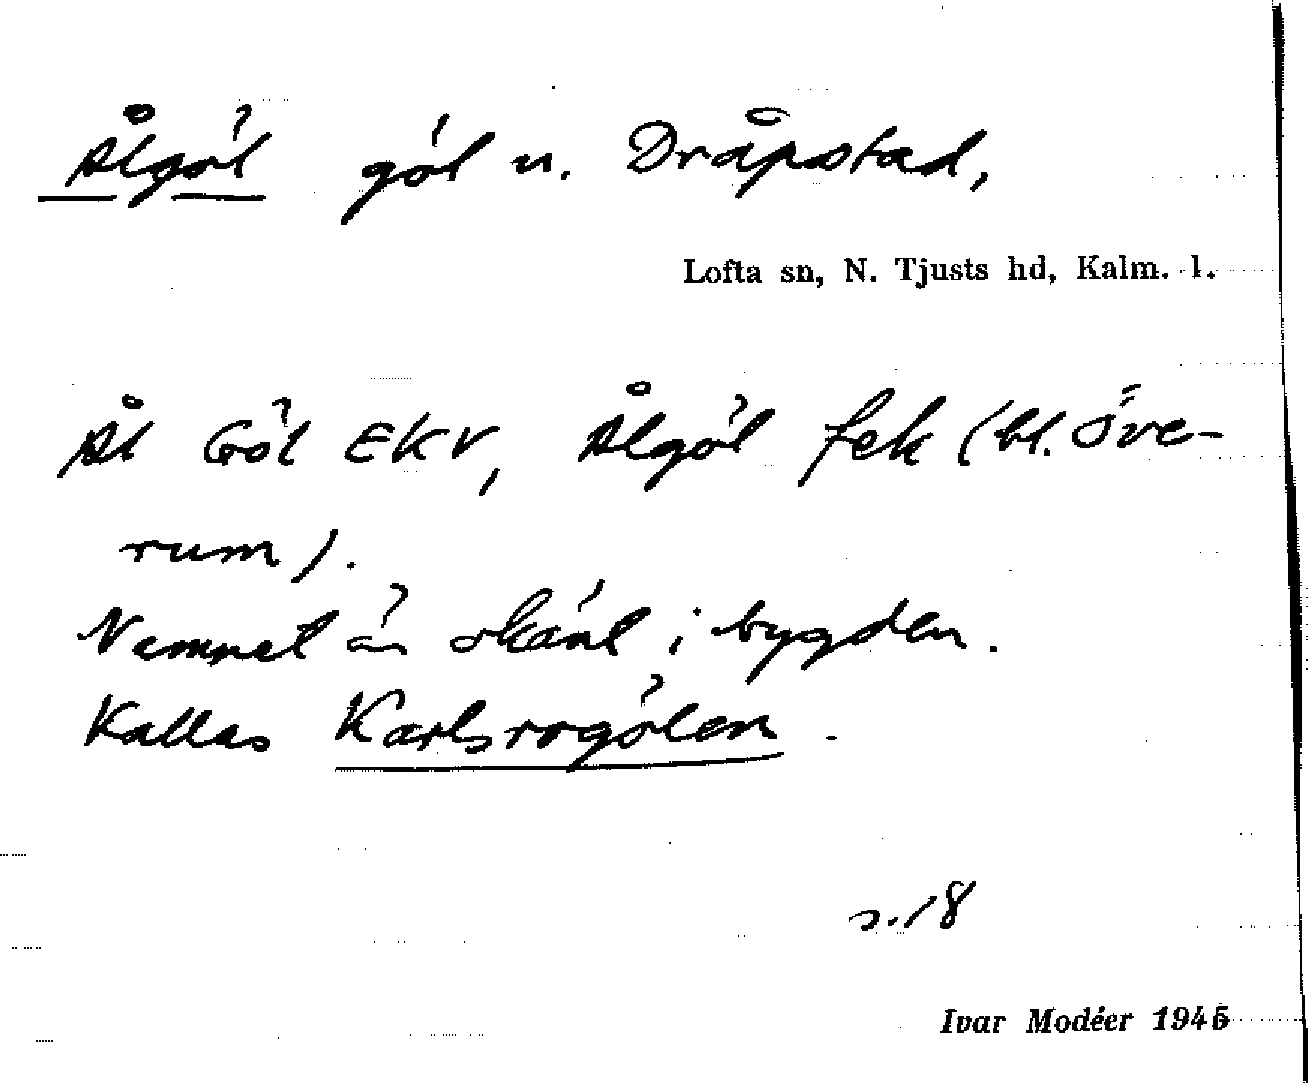 Ålgöl göl u. Dråpstad,
Lofta sn, N. Tjusts hd, Kalm. l.
Ål Göl EKV, Ålgöl fek (bl. Öve-
rum).
Namnet är okänt i bygden.
Kallas Karlsrogölen.
s. 18
Ivar Modéer 1945